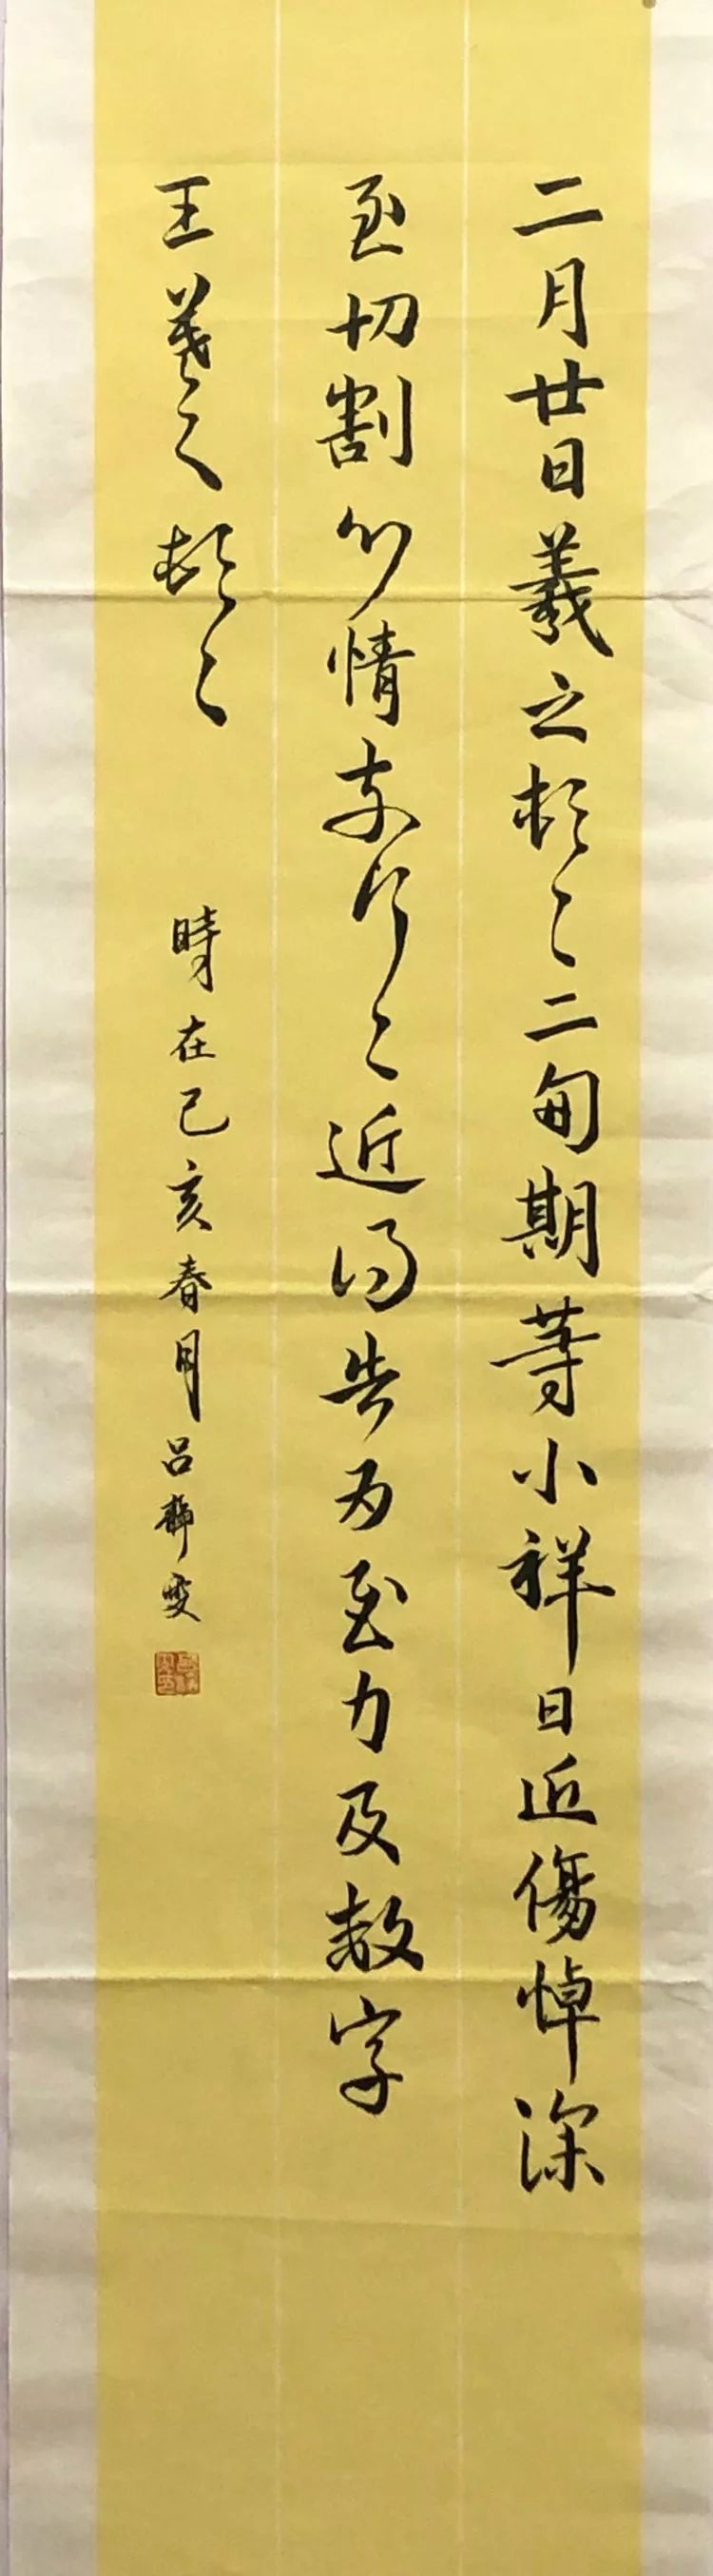 二月廿日羲之頓〻二旬期等小祥日近傷悼深
至切割心情奈何〻近得告為慰力及數字
王羲之頓〻
時在己亥春月呂靜雯